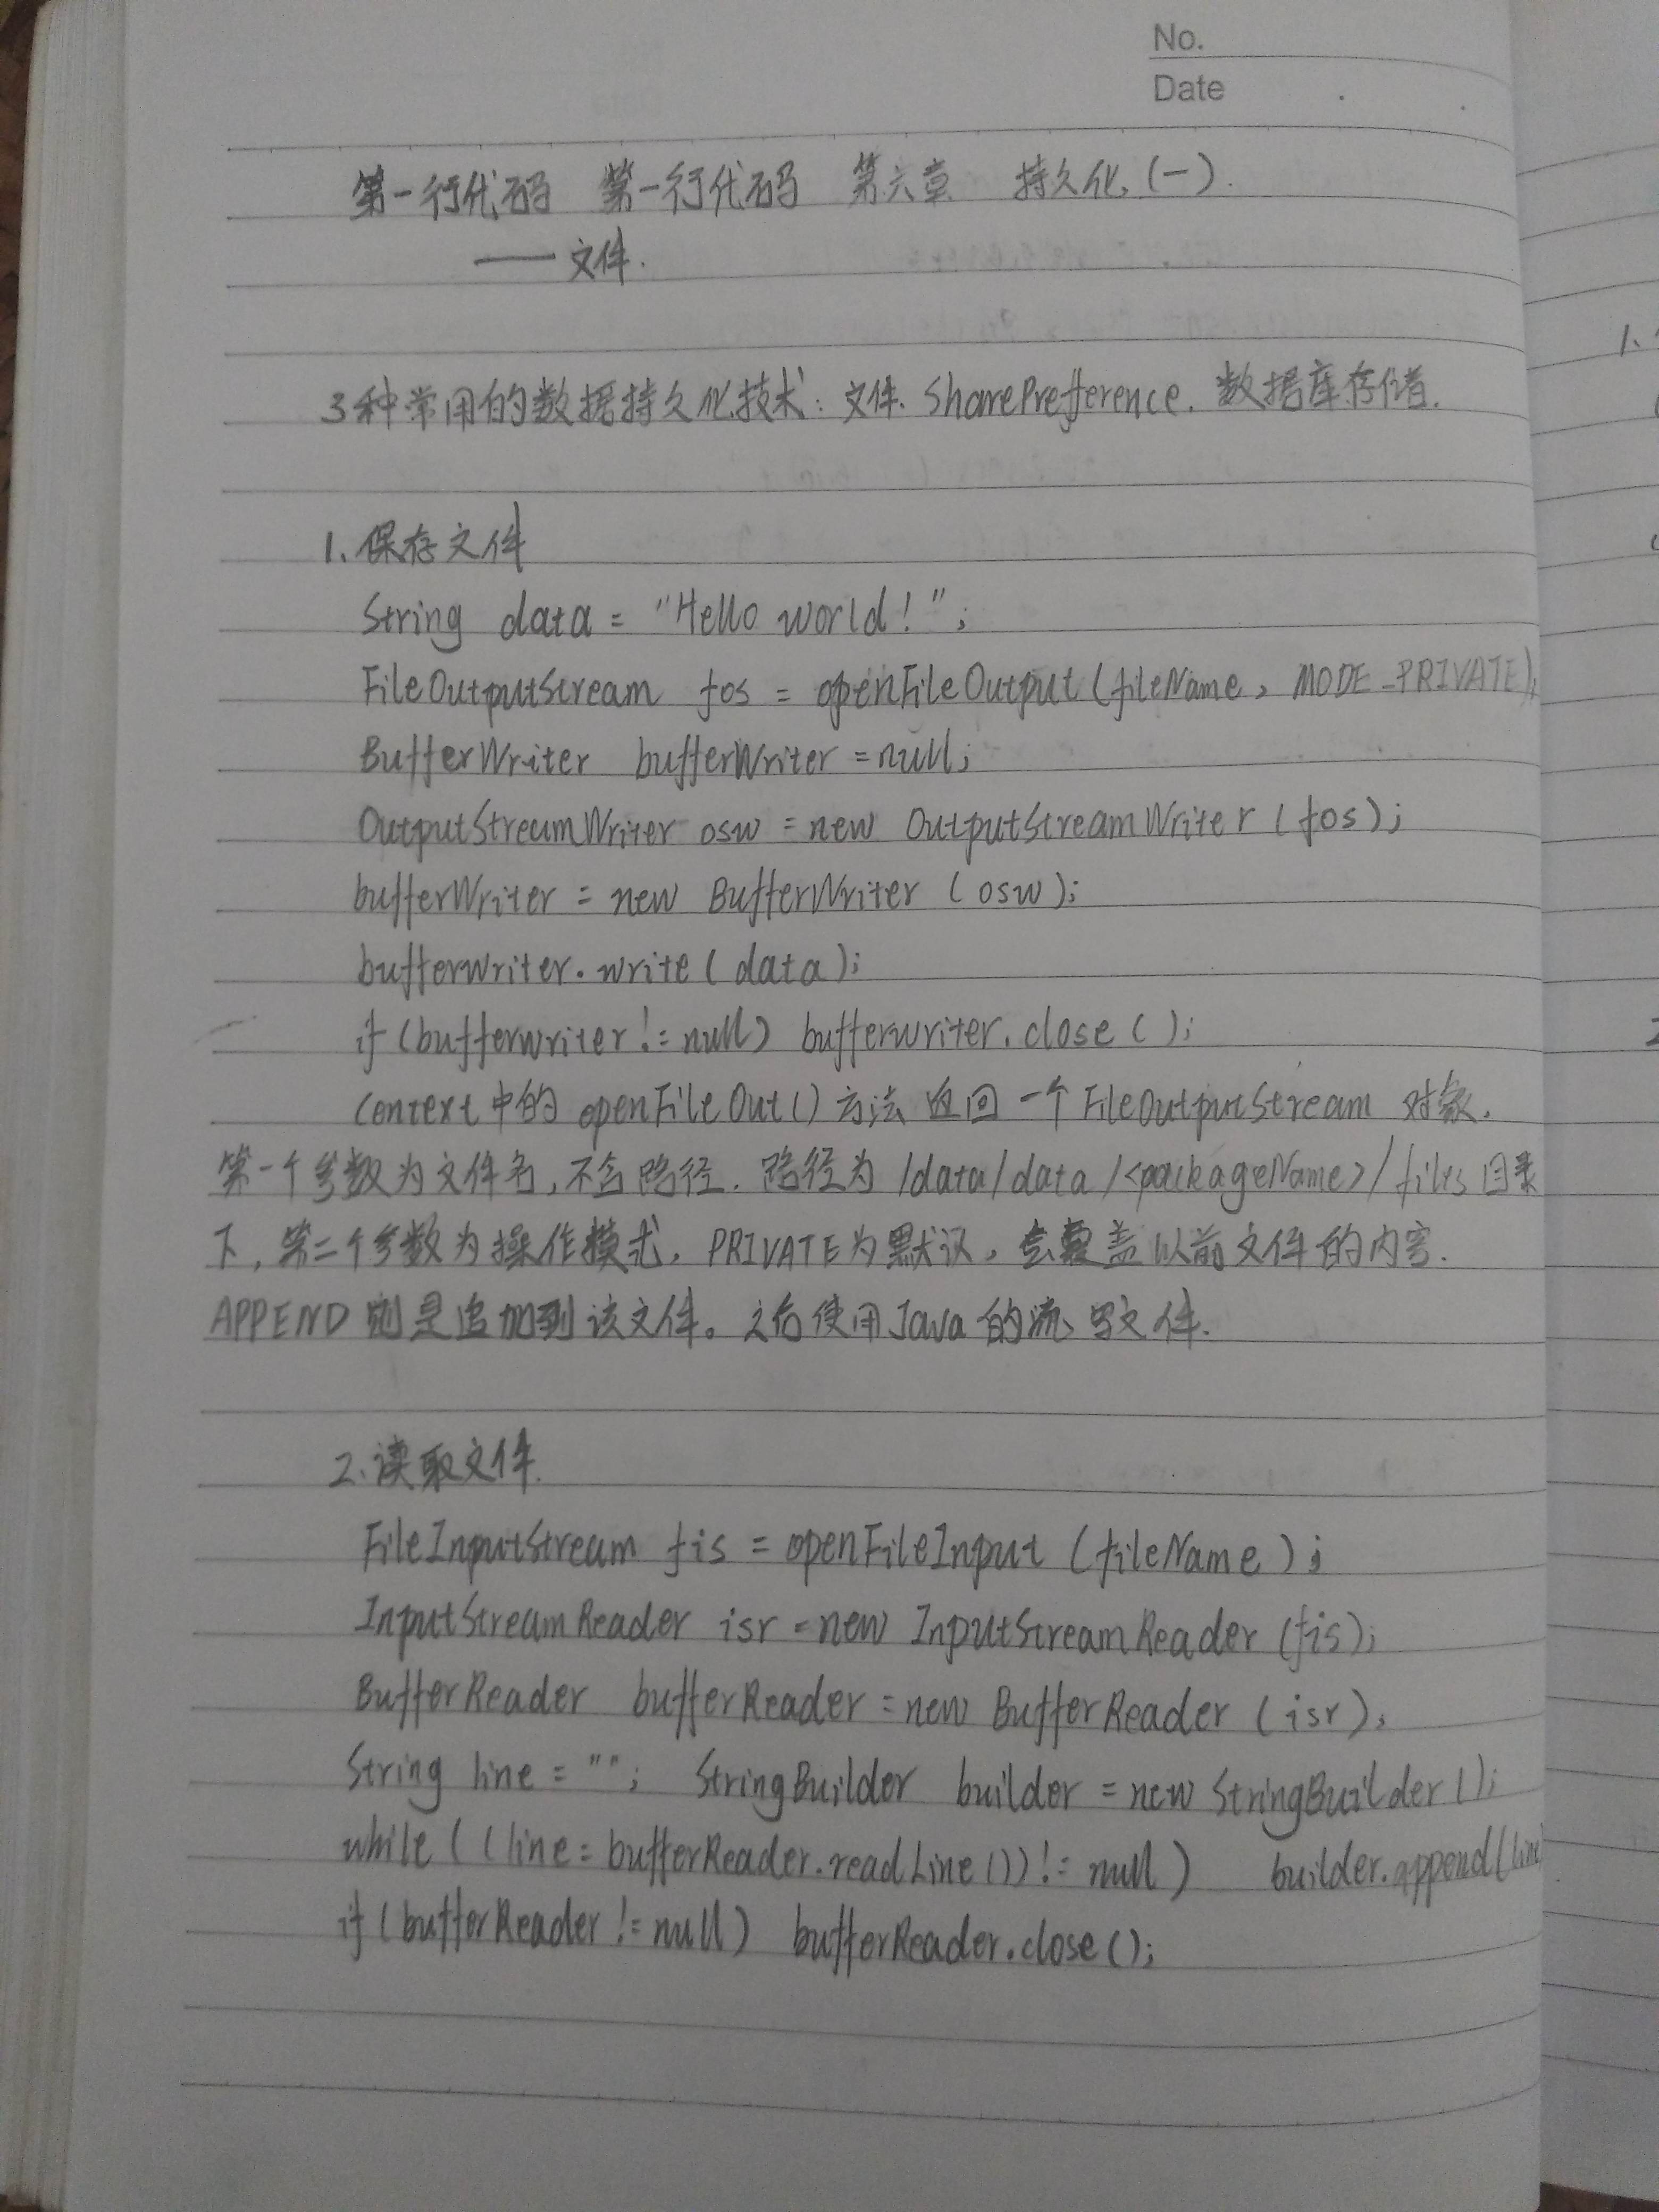 No.
Date
第一行代码 第一行代码 第六章 持久化(一).
——文件.
3种常用的数据持久化技术:文件. SharePrefference. 数据库存储.
1、保存文件
String data = "Hello world!";
FileOutputStream fos = openFileOutput(fileName, MODE_PRIVATE);
BufferWriter bufferWriter = null;
OutputStreamWriter osw = new OutputStreamWriter(fos);
bufferWriter = new BufferWriter(osw);
bufferwriter.write(data);
if(bufferwriter!=null) bufferwriter.close();
Context中的openFileOut()方法返回一个FileOutputStream对象.
第一个参数为文件名,不含路径.路径为/data/data/<packageName>/files目录
下,第二个参数为操作模式,PRIVATE为默认,会覆盖以前文件的内容.
APPEND则是追加到该文件。之后使用Java的流写文件.
2.读取文件.
FileInputStream fis = openFileInput(fileName);
InputStreamReader isr = new InputStreamReader(fis);
BufferReader bufferReader = new BufferReader(isr);
String line = ""; StringBuilder builder = new StringBuilder();
while((line = bufferReader.readLine())!= null) builder.append(line
if(bufferReader != null) bufferReader.close();